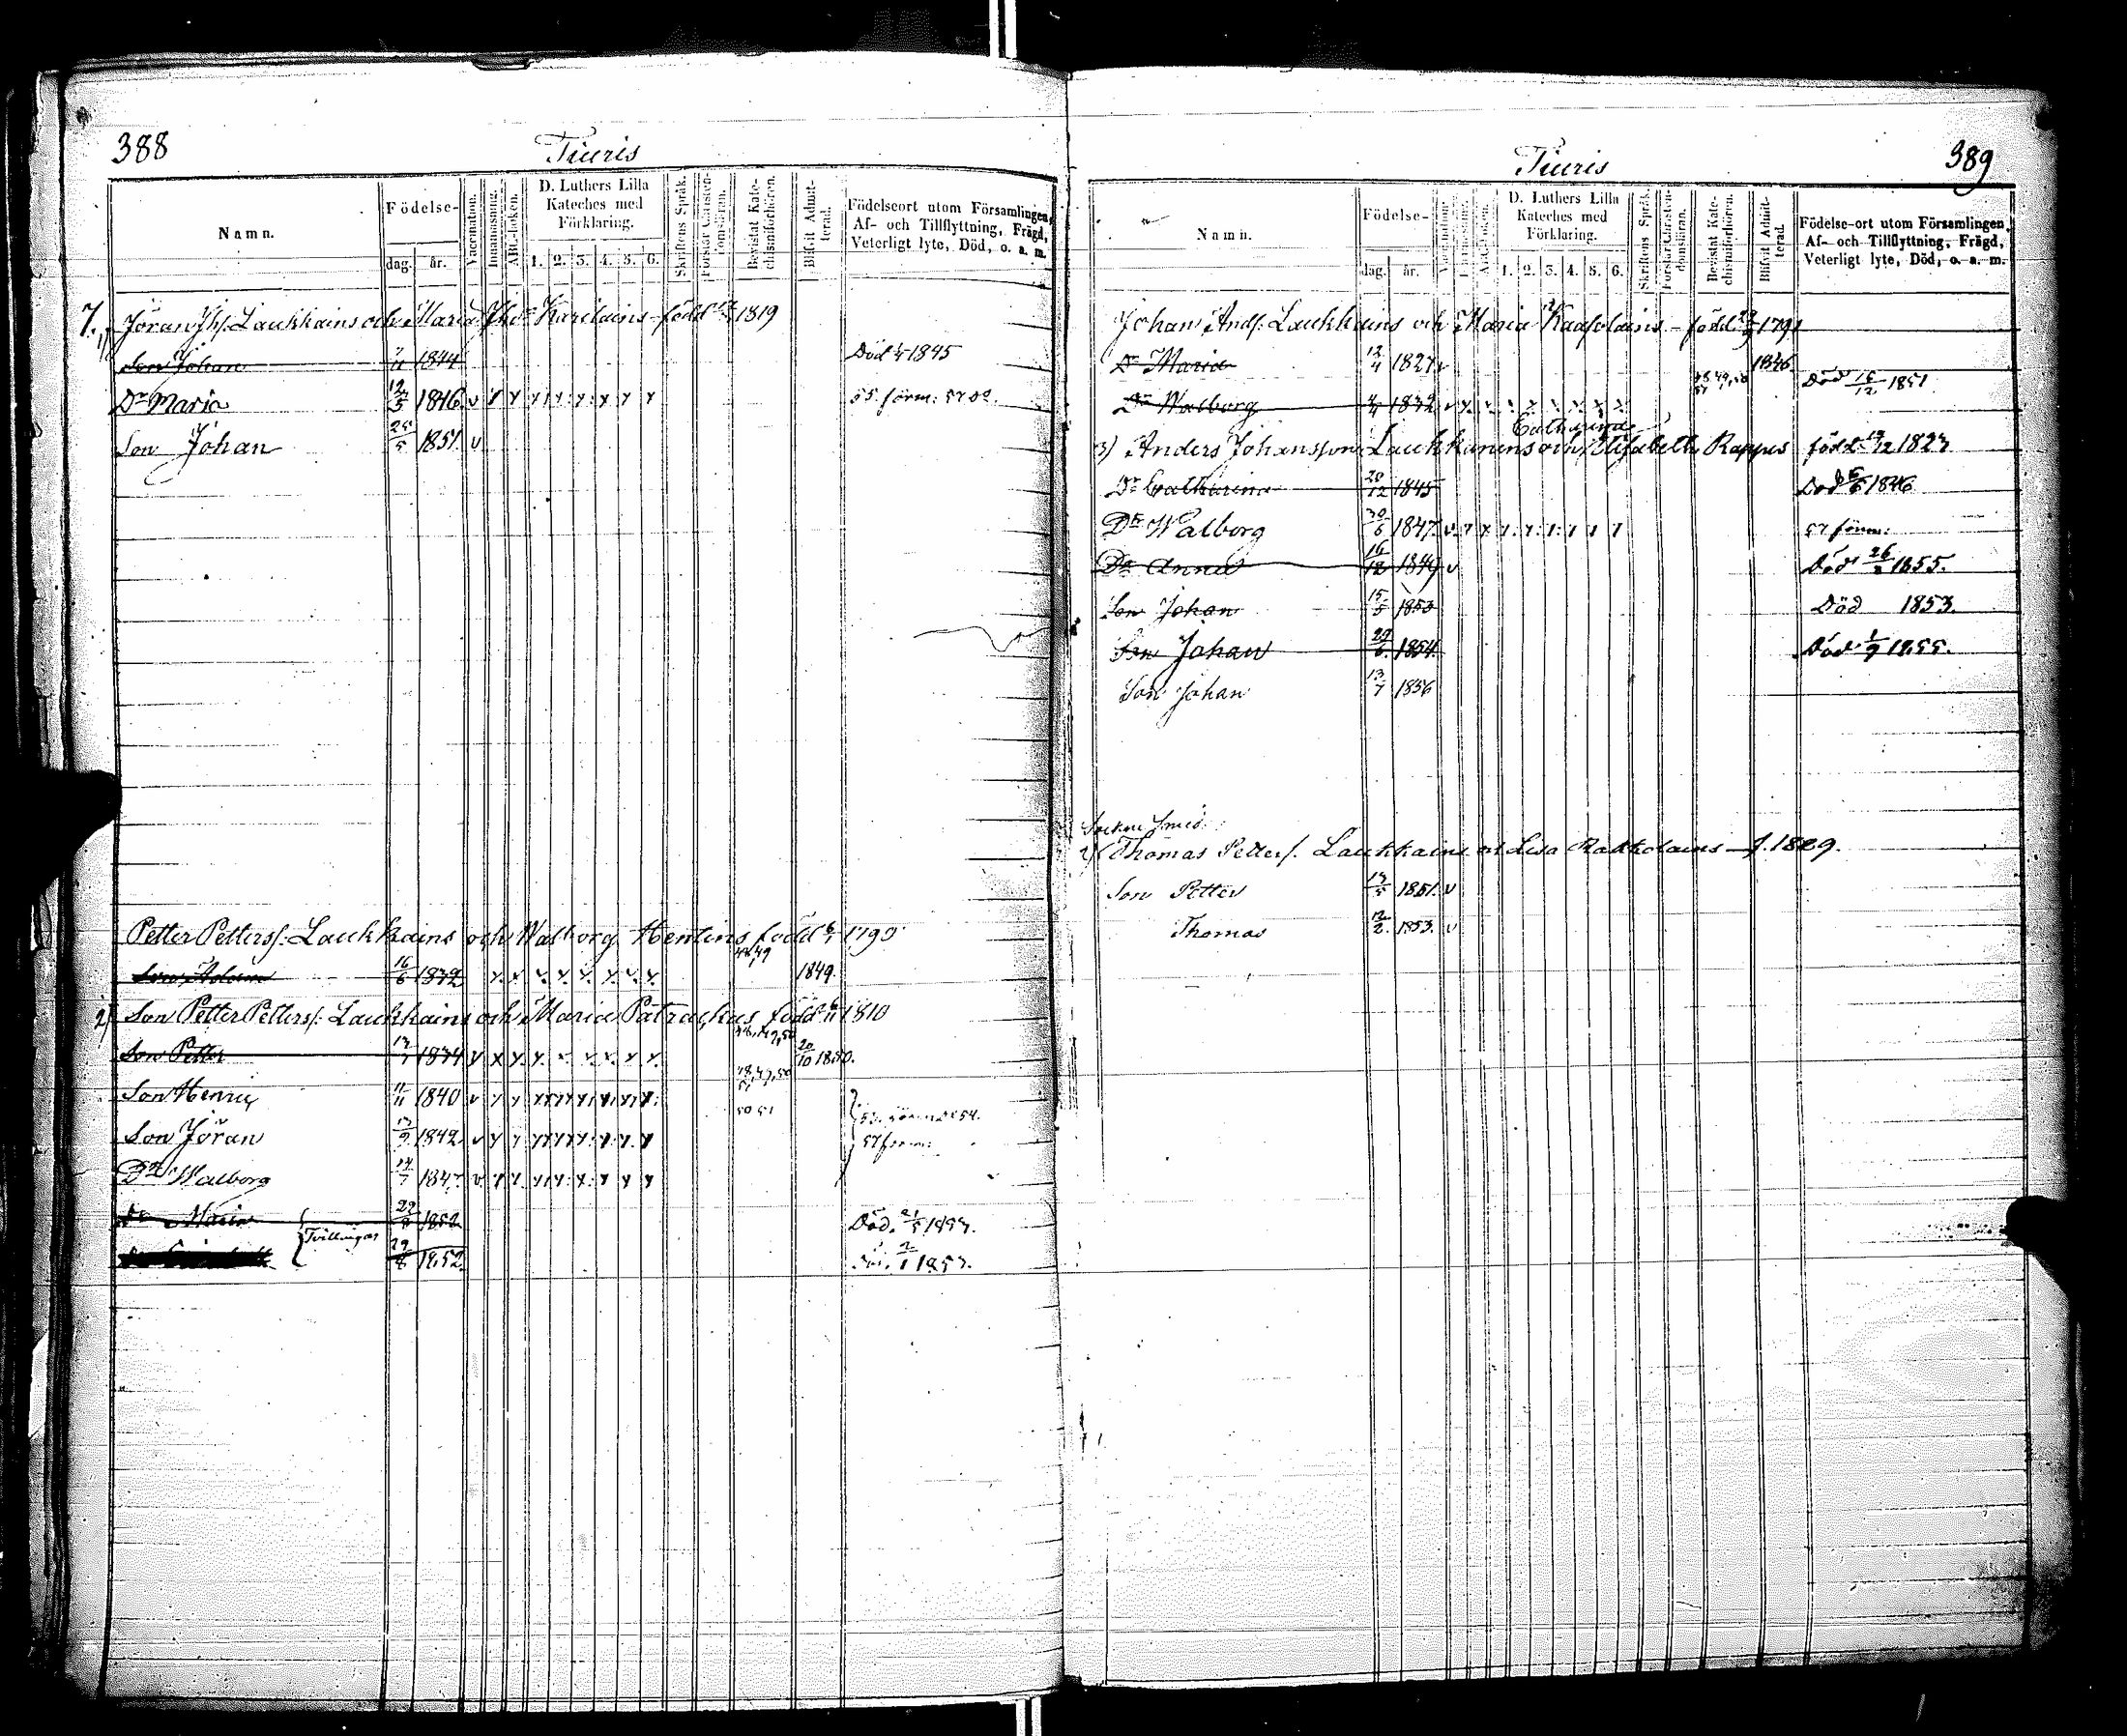 388
Tiuris
Namn.
Födelse-
dag. år.
Vaccination.
Innanläsning.
ABC-boken.
D. Luthers Lilla Kateches med Förklaring.
1. 2. 3. 4. 5. 6.
Skriftens Språk.
Förstår Christendomsläran.
Bevistat Katechismiförhören.
Blifvit Admitterad.
Födelseort utom Församlingen,
Af- och Tillflyttning, Frägd,
Veterligt lyte, Död, o. a. m.
7. 1) Jöran Jhs: Laukkains och Maria Karilains född 1819
Son Johan 1844 Död 1845
Dr Maria 12/5 1846 v 55 förm: 57
Son Johan 25/5 1851. v
Petter Petters: Laukkains och Walborg Hentins född 1790
48,49
Son Adam 16/6 1832 1849.
2) Son Petter Petters: Laukkains och Maria Patrackus född 6/11 1810
Son Petter 1834 20/10 1850.
48,49,50
51
Son Henric 11/11 1840 v
50 51
Son Jöran 13/9 1842 v 57 förm:
Dr Walborg 14/7 1847 v
Dr Maria 29/8 1852 Död. 21/5 1853.
Tvillingar
29/8 1852. 2/1 1853.
389
Tiuris
Namn.
Födelse-
dag. år.
D. Luthers Lilla Kateches med Förklaring.
1. 2. 3. 4. 5. 6.
Skriftens Språk.
Förstår Christendomsläran.
Bevistat Katechismiförhören.
Blifvit Admitterad.
Födelse-ort utom Församlingen,
Af- och Tillflyttning, Frägd,
Veterligt lyte, Död, o. a. m.
Johan Ands: Laukkains och Maria Kaasolains - född 1791
Dr Maria 12/4 1827 v 1846
Dr Walborg 1832 v Död 15/12 1851
Catharina
3) Anders Johansson Laukkanens och Elisabeth Rappus född 1823
Dr Catharina 20/12 1845 Död 1846
Dr Walborg 30/6 1847 v 57 förm:
Dr Anna 16/12 1849 v Död 26/2 1855.
Son Johan 15/5 1853 Död 1853.
Son Johan 29/6 1854 Död 1/9 1855.
Son Johan 13/7 1856
Socken Smed
2) Thomas Petters. Laukkains och Lisa Rakkolains - f. 1829.
Son Petter 13/5 1851. v
Thomas 12/2 1853. v